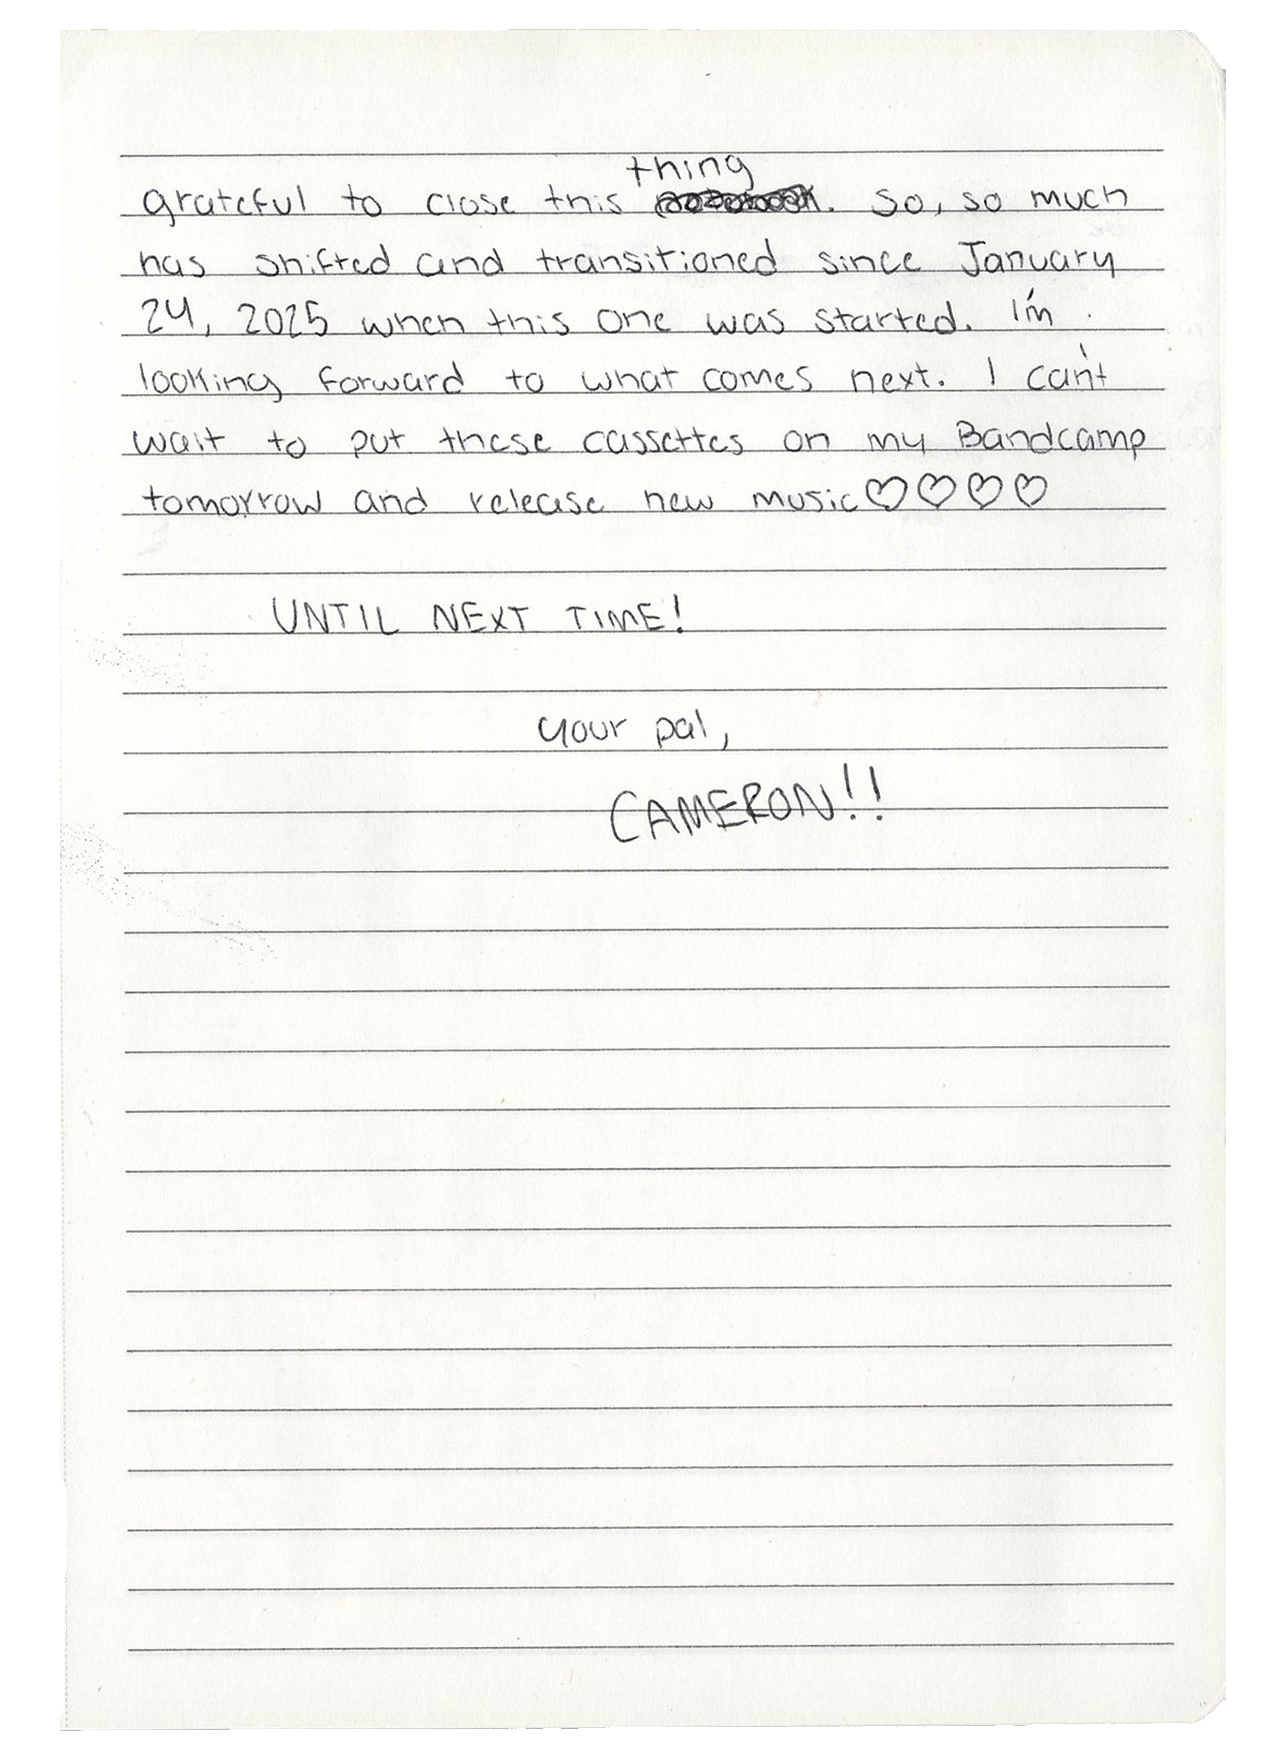 thing
grateful to close this. So, so much
has shifted and transitioned since January
24, 2025 when this one was started. I'm
looking forward to what comes next. I can't
wait to put these cassettes on my Bandcamp
tomorrow and release new music♡♡♡♡
UNTIL NEXT TIME!
your pal,
CAMERON!!